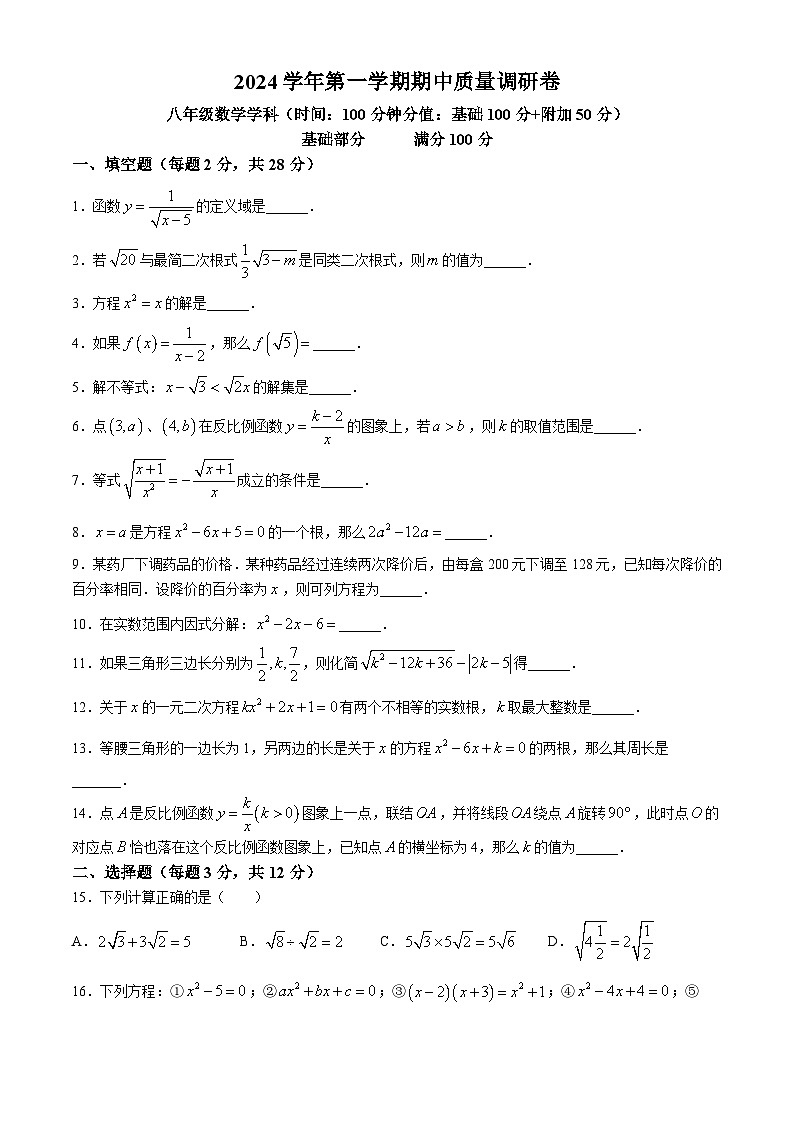 2024学年第一学期期中质量调研卷
八年级数学学科（时间：100分钟分值：基础100分+附加50分）
基础部分 满分100分
一、填空题（每题2分，共28分）
1．函数 y = 1/√(x−5) 的定义域是______．
2．若 √20 与最简二次根式 1/3 √(3−m) 是同类二次根式，则 m 的值为______．
3．方程 x² = x 的解是______．
4．如果 f(x) = 1/(x−2)，那么 f(√5) = ______．
5．解不等式：x − √3 < √2x 的解集是______．
6．点(3,a)、(4,b)在反比例函数 y = (k−2)/x 的图象上，若 a > b，则 k 的取值范围是______．
7．等式 √((x+1)/x²) = −√(x+1)/x 成立的条件是______．
8．x = a 是方程 x² − 6x + 5 = 0 的一个根，那么 2a² − 12a = ______．
9．某药厂下调药品的价格．某种药品经过连续两次降价后，由每盒200元下调至128元，已知每次降价的
百分率相同．设降价的百分率为 x，则可列方程为______．
10．在实数范围内因式分解：x² − 2x − 6 = ______．
11．如果三角形三边长分别为 1/2, k, 7/2，则化简 √(k² − 12k + 36) − |2k − 5| 得______．
12．关于 x 的一元二次方程 kx² + 2x + 1 = 0 有两个不相等的实数根，k 取最大整数是______．
13．等腰三角形的一边长为1，另两边的长是关于 x 的方程 x² − 6x + k = 0 的两根，那么其周长是
_______．
14．点 A 是反比例函数 y = k/x (k > 0) 图象上一点，联结 OA，并将线段 OA 绕点 A 旋转 90°，此时点 O 的
对应点 B 恰也落在这个反比例函数图象上，已知点 A 的横坐标为4，那么 k 的值为______．
二、选择题（每题3分，共12分）
15．下列计算正确的是（ ）
A．2√3 + 3√2 = 5 B．√8 ÷ √2 = 2 C．5√3 × 5√2 = 5√6 D．√(4 1/2) = 2√(1/2)
16．下列方程：①x² − 5 = 0；②ax² + bx + c = 0；③(x − 2)(x + 3) = x² + 1；④x² − 4x + 4 = 0；⑤